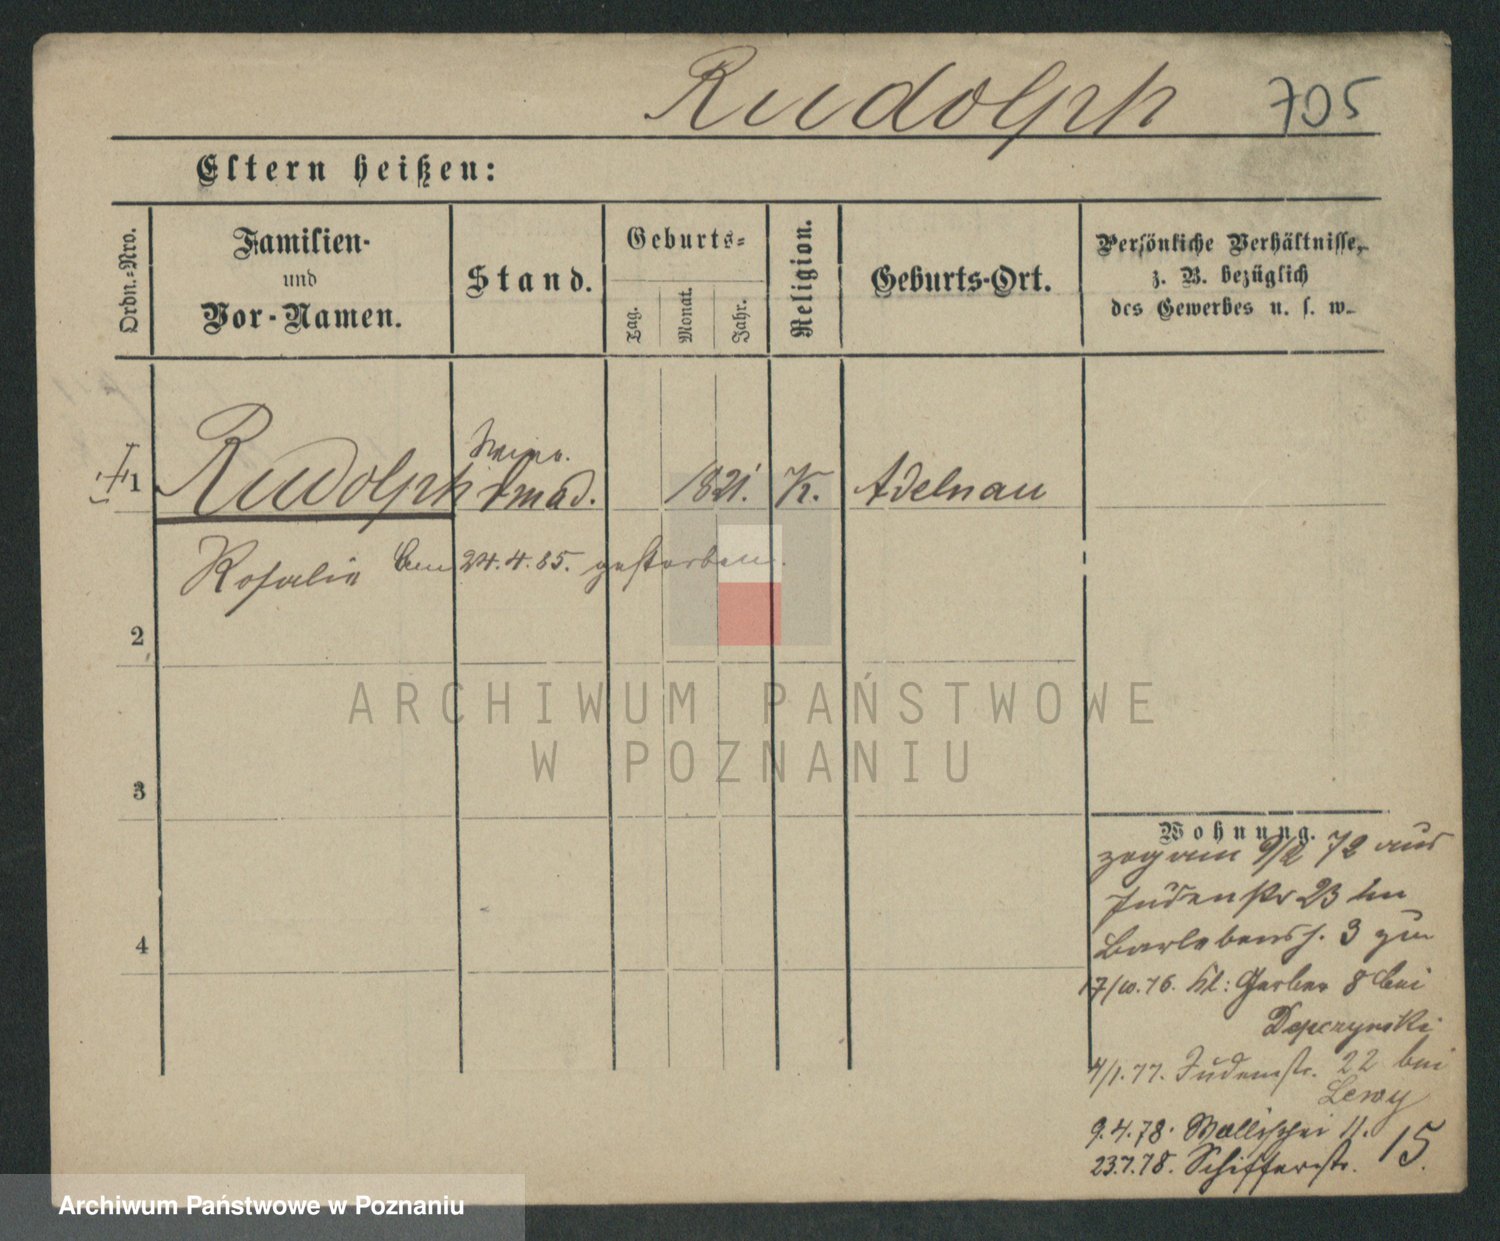 Rudolph 705
Eltern heißen:
Ordn.-Nro.
Familien-
und
Vor-Namen.
Stand.
Geburts-
Tag.
Monat.
Jahr.
Religion.
Geburts-Ort.
Persönliche Verhältnisse,
z. B. bezüglich
des Gewerbes u. s. w.
1 Rudolph 1821. K. Adelnau
Rosalie Am 24.4.85. gestorben.
2
3
4
Wohnung.
zog am 9/2 72 aus
Judenstr 23 in
3 zu
17/10.76. Kl: Gerber 8 bei
4/1.77. Judenstr. 22 bei
Lewy
9.4.78. Wallischei 11.
23.7.78. Schifferstr. 15.
ARCHIWUM PAŃSTWOWE
W POZNANIU
Archiwum Państwowe w Poznaniu